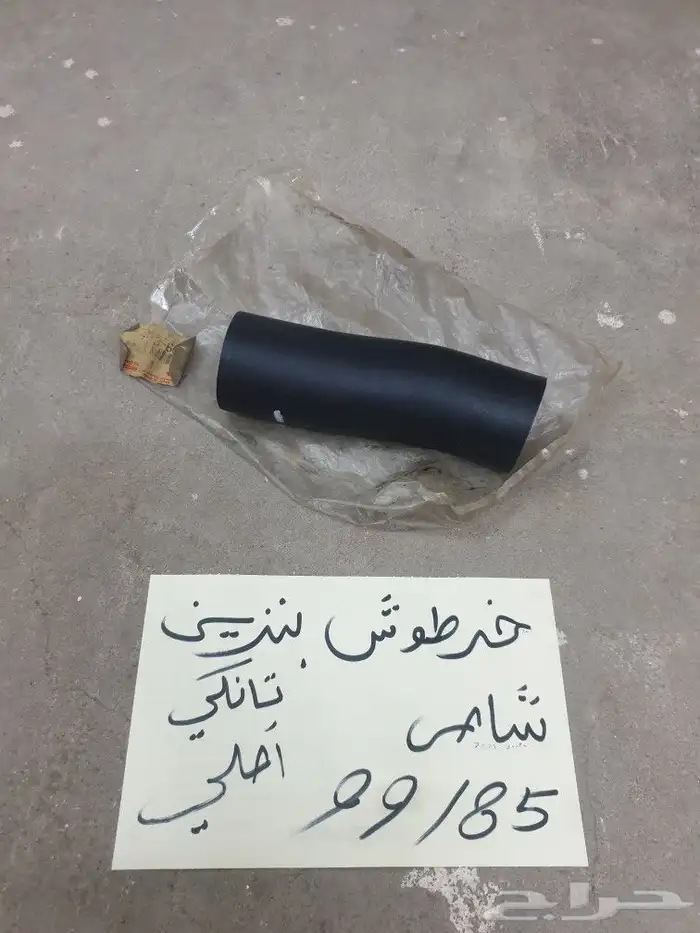 خرطوش بنزين
شاص تانكي
99/85 أصلي
حراج